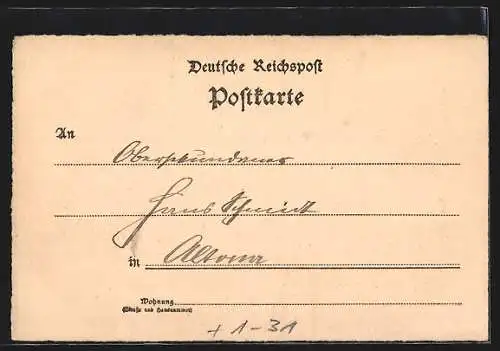 Deutsche Reichspost
Postkarte
An
Obersekundaner
Hans Schmidt
in Altona
Wohnung
(Straße und Hausnummer)
+ 1-31